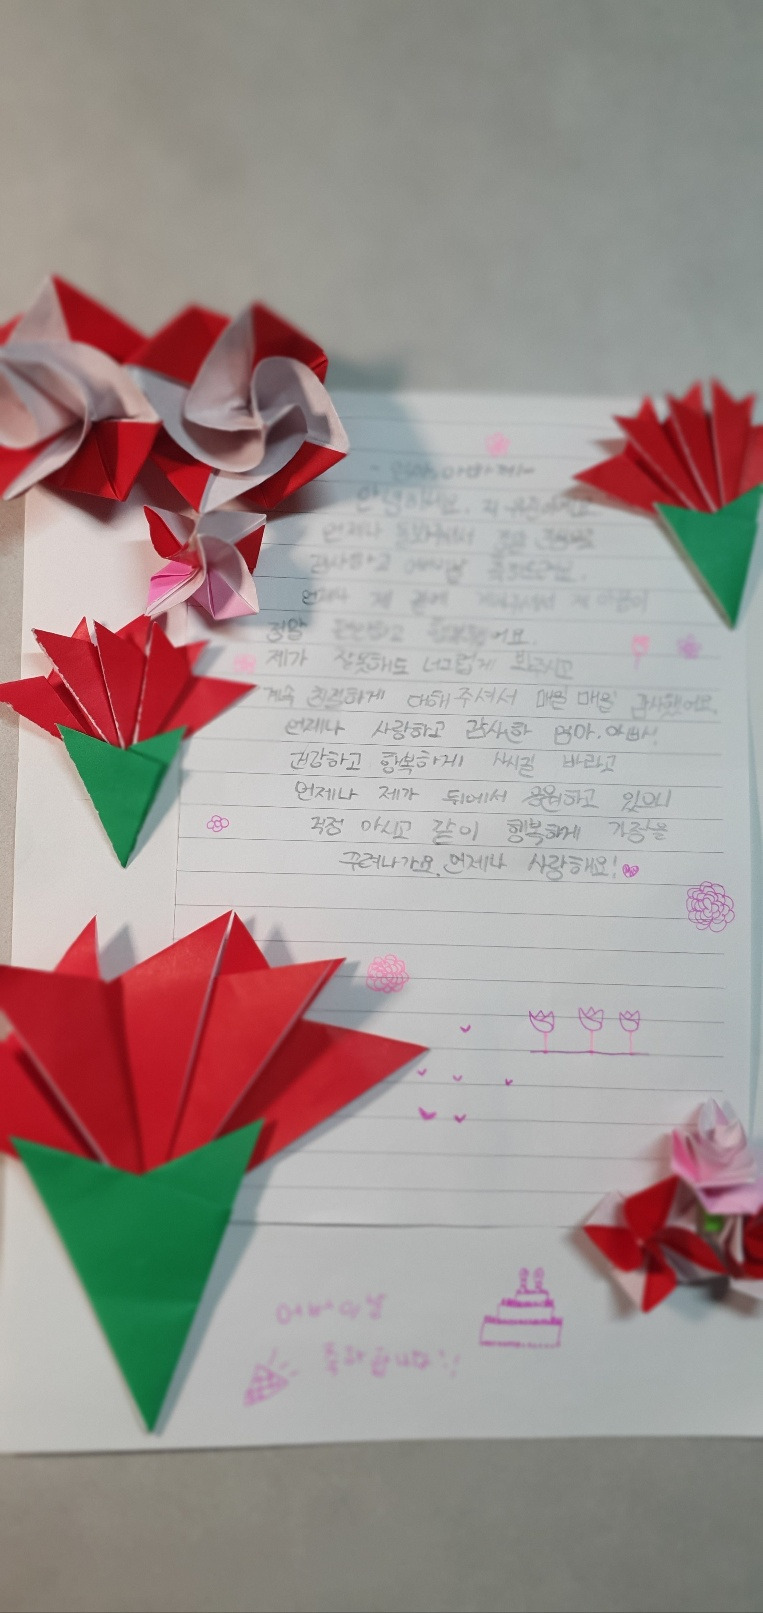 - 엄마, 아빠께 -
안녕하세요. 저
언제나 돌봐주셔서
감사하고
언제나 제 곁에 계셔주셔서 제 마음이
정말 편안하고 행복했어요.
제가 잘못해도 너그럽게 봐주시고
계속 친절하게 대해 주셔서 매일 매일 감사했어요.
언제나 사랑하고 감사한 엄마, 아빠!
건강하고 행복하게 사시길 바라고
언제나 제가 뒤에서 응원하고 있으니
걱정 마시고 같이 행복하게 가정을
꾸려나가요. 언제나 사랑해요!
어버이날
축하합니다